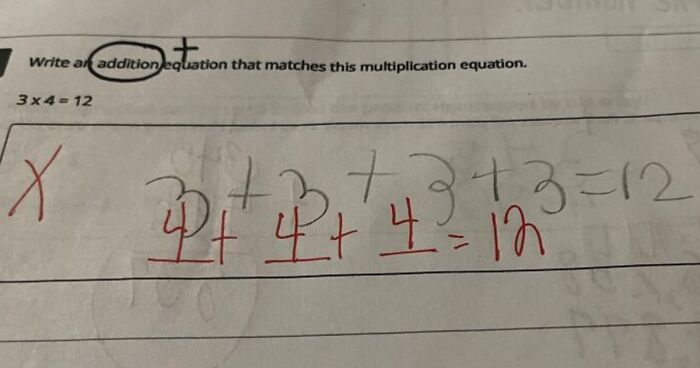 +
Write an addition equation that matches this multiplication equation.
3 x 4 = 12
X
3 + 3 + 3 + 3 = 12
4 + 4 + 4 = 12